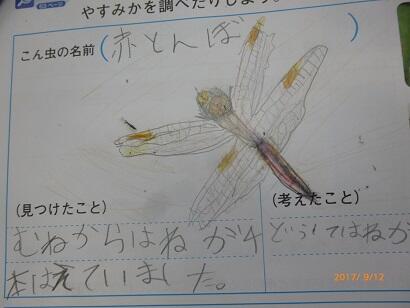 やすみかを調べたりしよう。
こん虫の名前(赤とんぼ)
(見つけたこと)
むねからはねが4
本はえていました。
(考えたこと)
どうしてはねが
2017/ 9/12